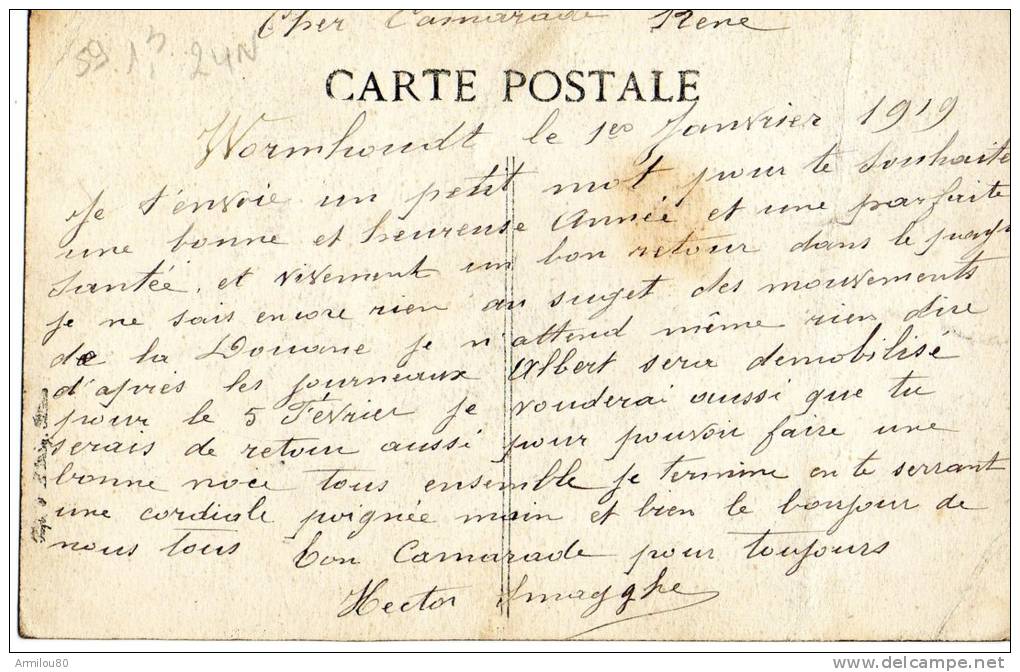 Cher Camarade René
59 1,5 24N
CARTE POSTALE
Wormhoudt le 1er Janvier 1919
Je t'envoie un petit mot pour te souhaite
une bonne et heureuse Année et une parfaite
Santée. et vivement un bon retour dans le pays
Je ne sais encore rien au suget des mouvements
de la Douane je n'attend même rien dire
d'après les journeaux Albert sera demobilisé
pour le 5 Février je vouderai aussi que tu
serais de retour aussi pour pouvoir faire une
bonne noce tous ensemble je termine en te serrant
une cordiale poignée main et bien le bonjour de
nous tous ton Camarade pour toujours
Hector Smagghe
Armilou80
www.delcampe.net